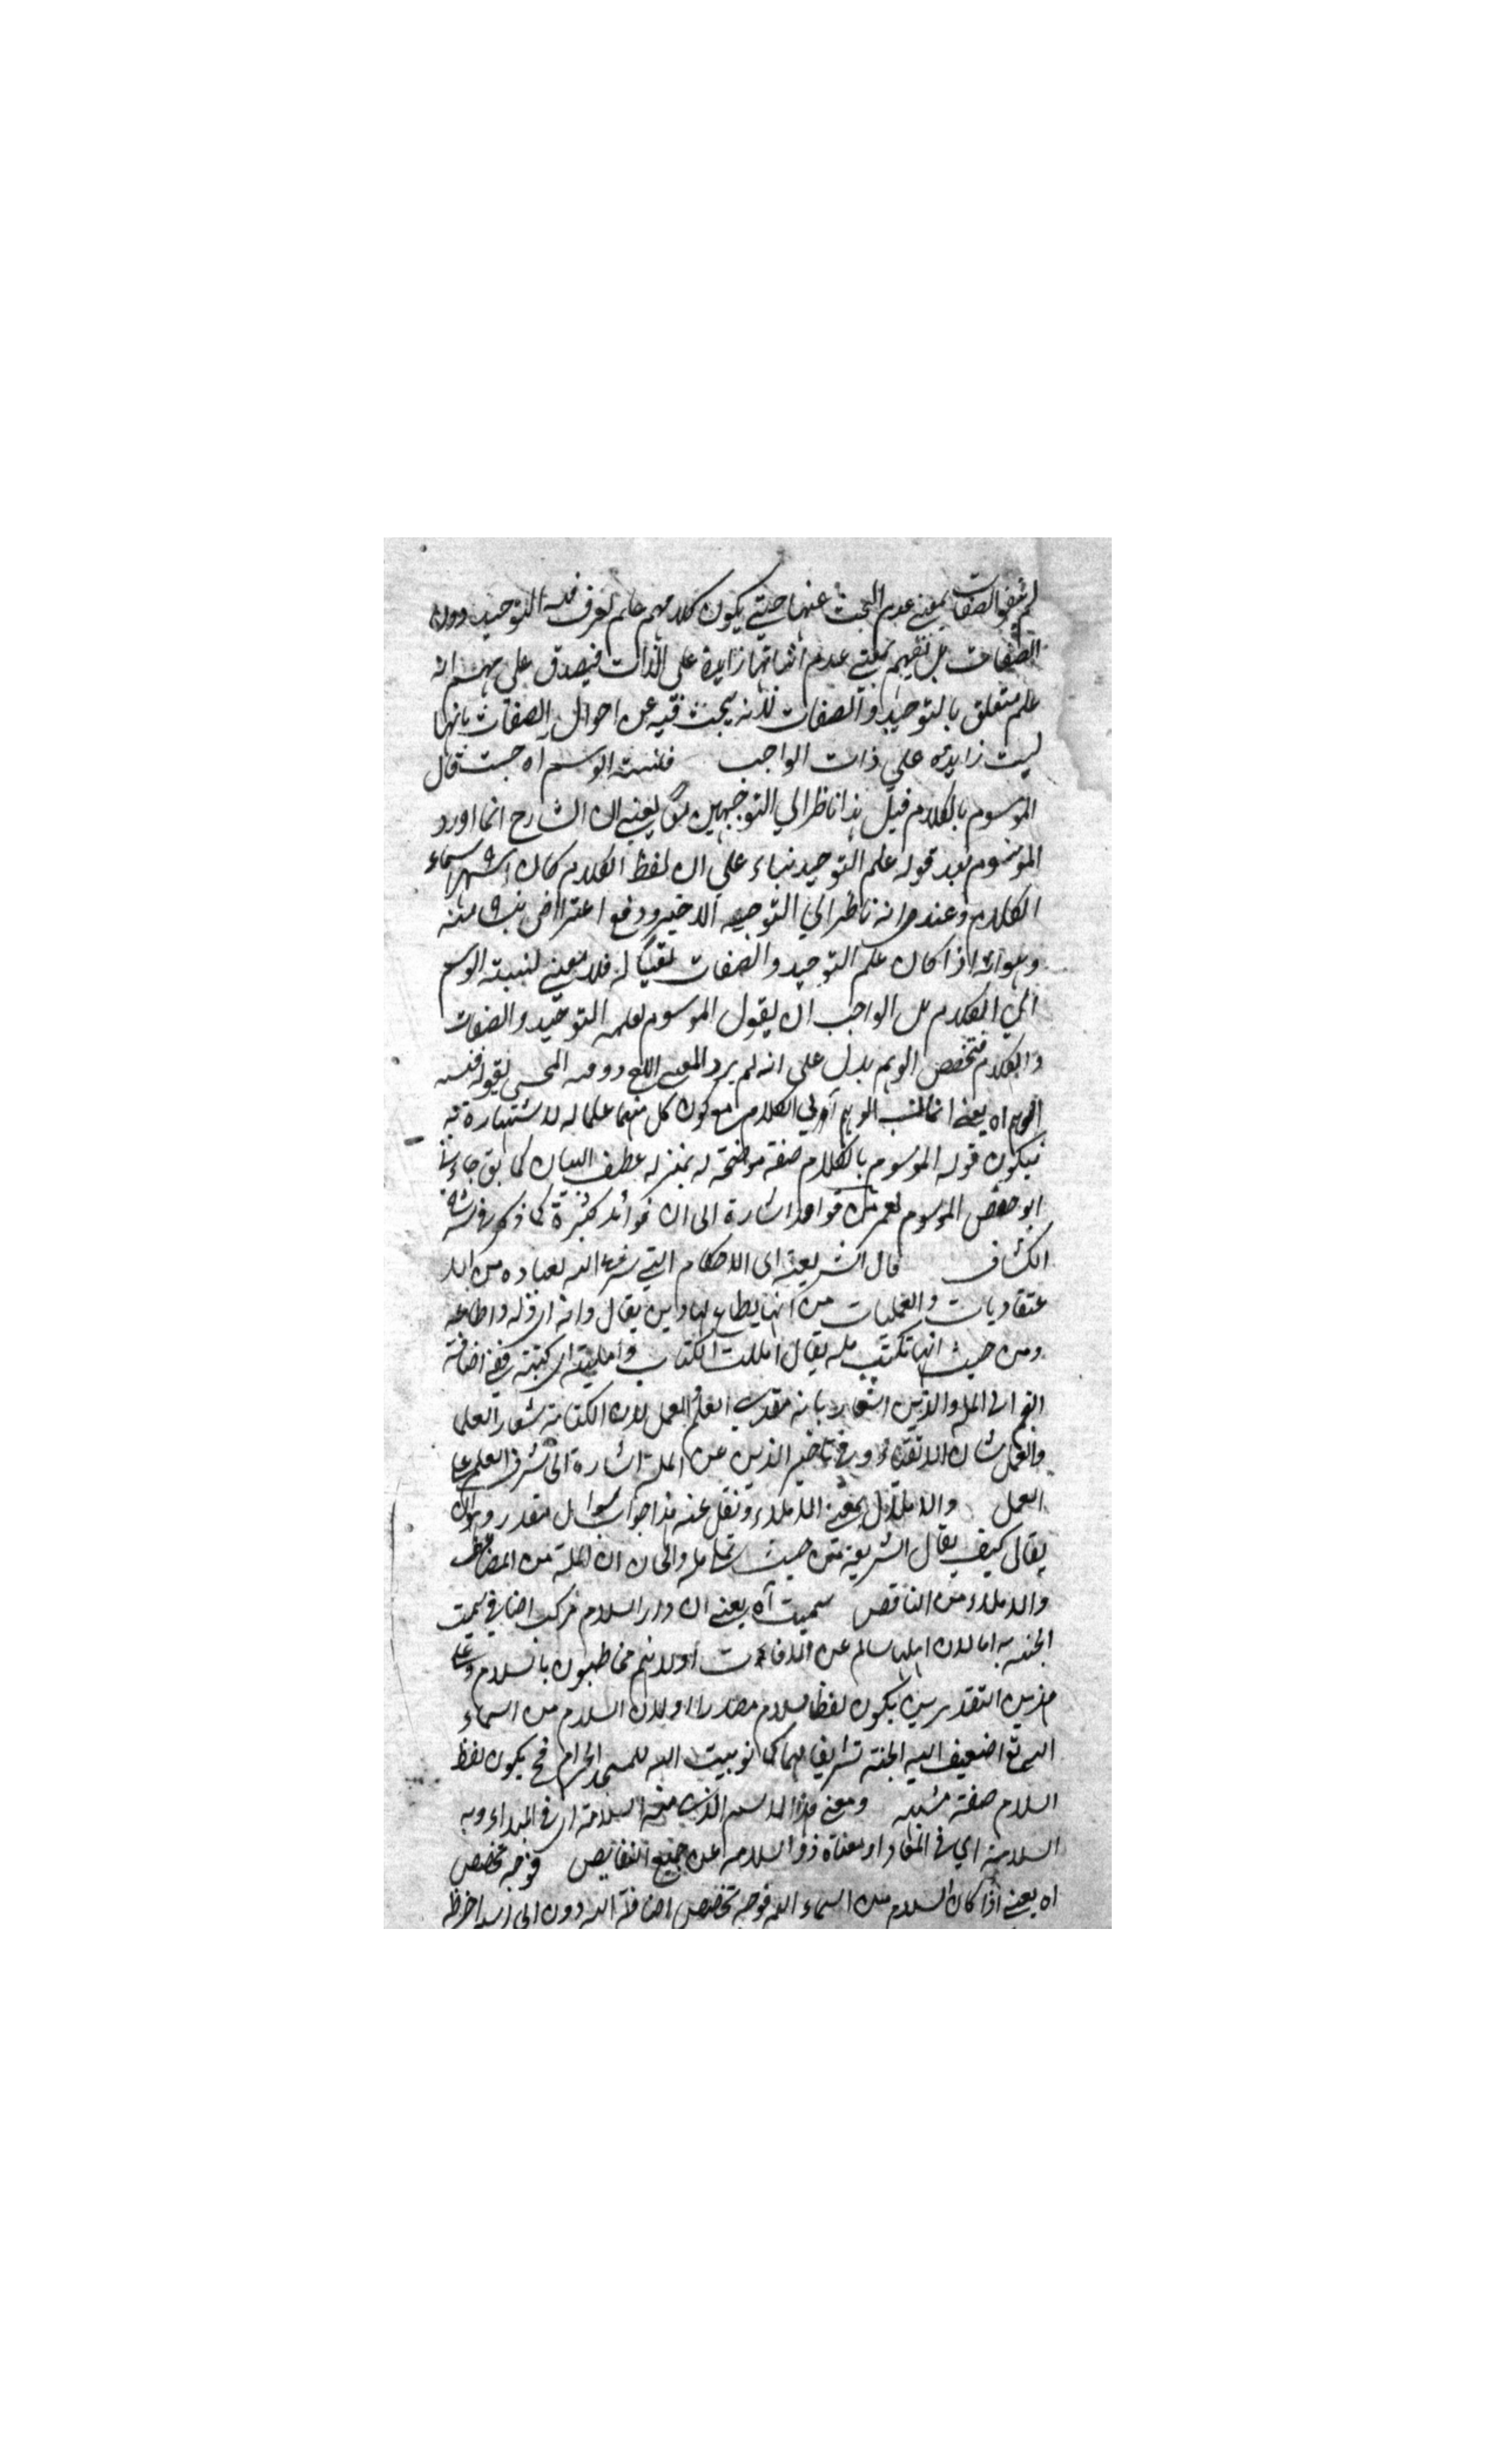 لم ينفوا الصفات بمعنى عدم البحث عنها حتى يكون كلامهم علم يعرف فيه التوحيد دون
الصفات بل نفيهم بمعنى عدم اثباتها زايدة على الذات فيصدق على انه
علم متعلق بالتوحيد والصفات لانه يبحث فيه عن احوال الصفات بانها
ليست زايدة على ذات الواجب فنسبة الوسم اه حيث قال
الموسوم بالكلام قيل هذا ناظر الى التوجيهين يعني ان الشارح انما اورد
الموسوم بعد قوله علم التوحيد بناء على ان لفظ الكلام كان اشهر اسماء
الكلام وعند انه ناظر الى التوجيه الاخير ودفع اعتراض منه
وهو انه اذا كان علم التوحيد والصفات لقبا له فلا معنى لنسبة الوسم
الى الكلام بل الواجب ان يقول الموسوم بعلم التوحيد والصفات
والكلام فتخصيص الوسم يدل على انه لم يرد المعنى ودفعه المحشي بقوله فنسبة
الوسم اه يعني انما نسب الوسم الى الكلام مع كون كل منهما علما له لاشتهاره به
فيكون قوله الموسوم بالكلام صفة موضحة له بمنزلة عطف البيان كما يقال جاءني
ابو حفص الموسوم بعمر قواعد اشارة الى ان فوائد كثيرة كما ذكر في
الكشاف قال الشريعة اى الاحكام التي شرعها الله لعباده من الا
عتقاديات والعمليات من انها يطاع لها دين يقال دانه اى ذله واطاعه
ومن حيث انها تكتب مله يقال امللت الكتاب وامليته اى كتبته ففي اضافة
النجم الى المله والدين اشعار بانه العلم العمل لان الكتابة شعار العلما
والعمل شان الاتقياء وفي تاخير الدين عن الملة اشارة الى شرف العلم على
العمل والاملال بمعنى الاملاء ونقل عنه هذا جواب سوال مقدر وهو ان
يقال كيف يقال الشريعة من حيث تملى مله والحال ان الملة من المضاعف
والاملاء من الناقص سميت اه يعني ان دار السلام مركب اضافي سميت
الجنة به اما لان اهلها سالم عن الافات او لانهم مخاطبون بالسلام وعلى
هذين التقديرين يكون لفظ السلام مصدرا او لان السلام من اسماء
الله تع اضيف اليه الجنة تشريفا لها كما نو بيت الله للمسجد الحرام فح يكون لفظ
السلام صفة مشبه ومعنى هذا الاسم الذي منه السلامة اى في المبداء وبه
السلامة اي في المعاد او معناه ذو السلامة عن جميع النقايص فوجه تخصيص
اه يعني اذا كان السلام من اسماء الله فوجه تخصيص اضافة الله دون الى اسم اخر